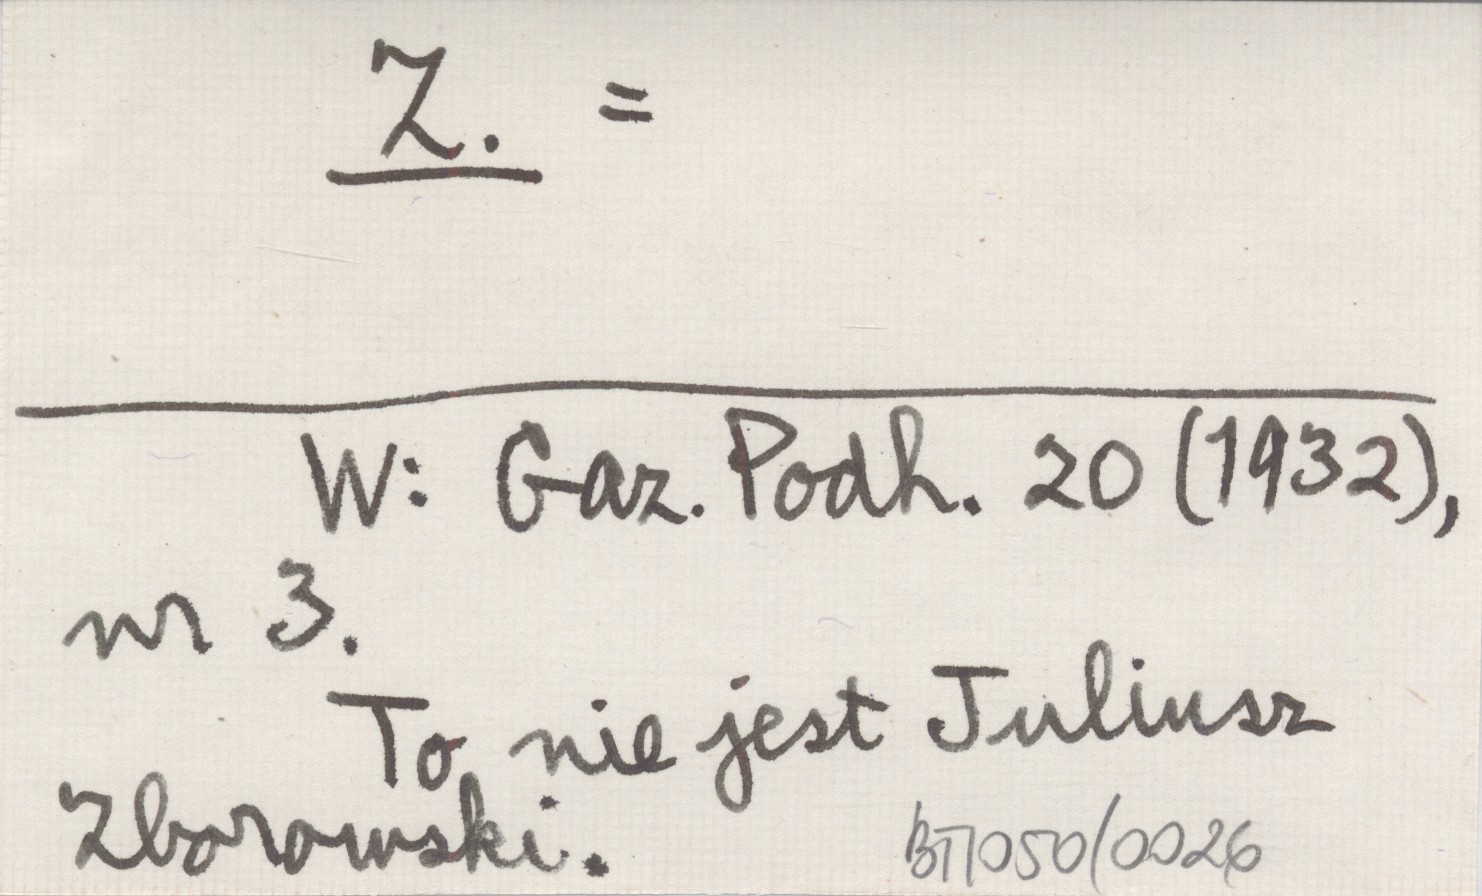 Z. =
W: Gaz. Podh. 20 (1932),
nr 3.
To nie jest Juliusz
Zborowski.
BT1050/0026